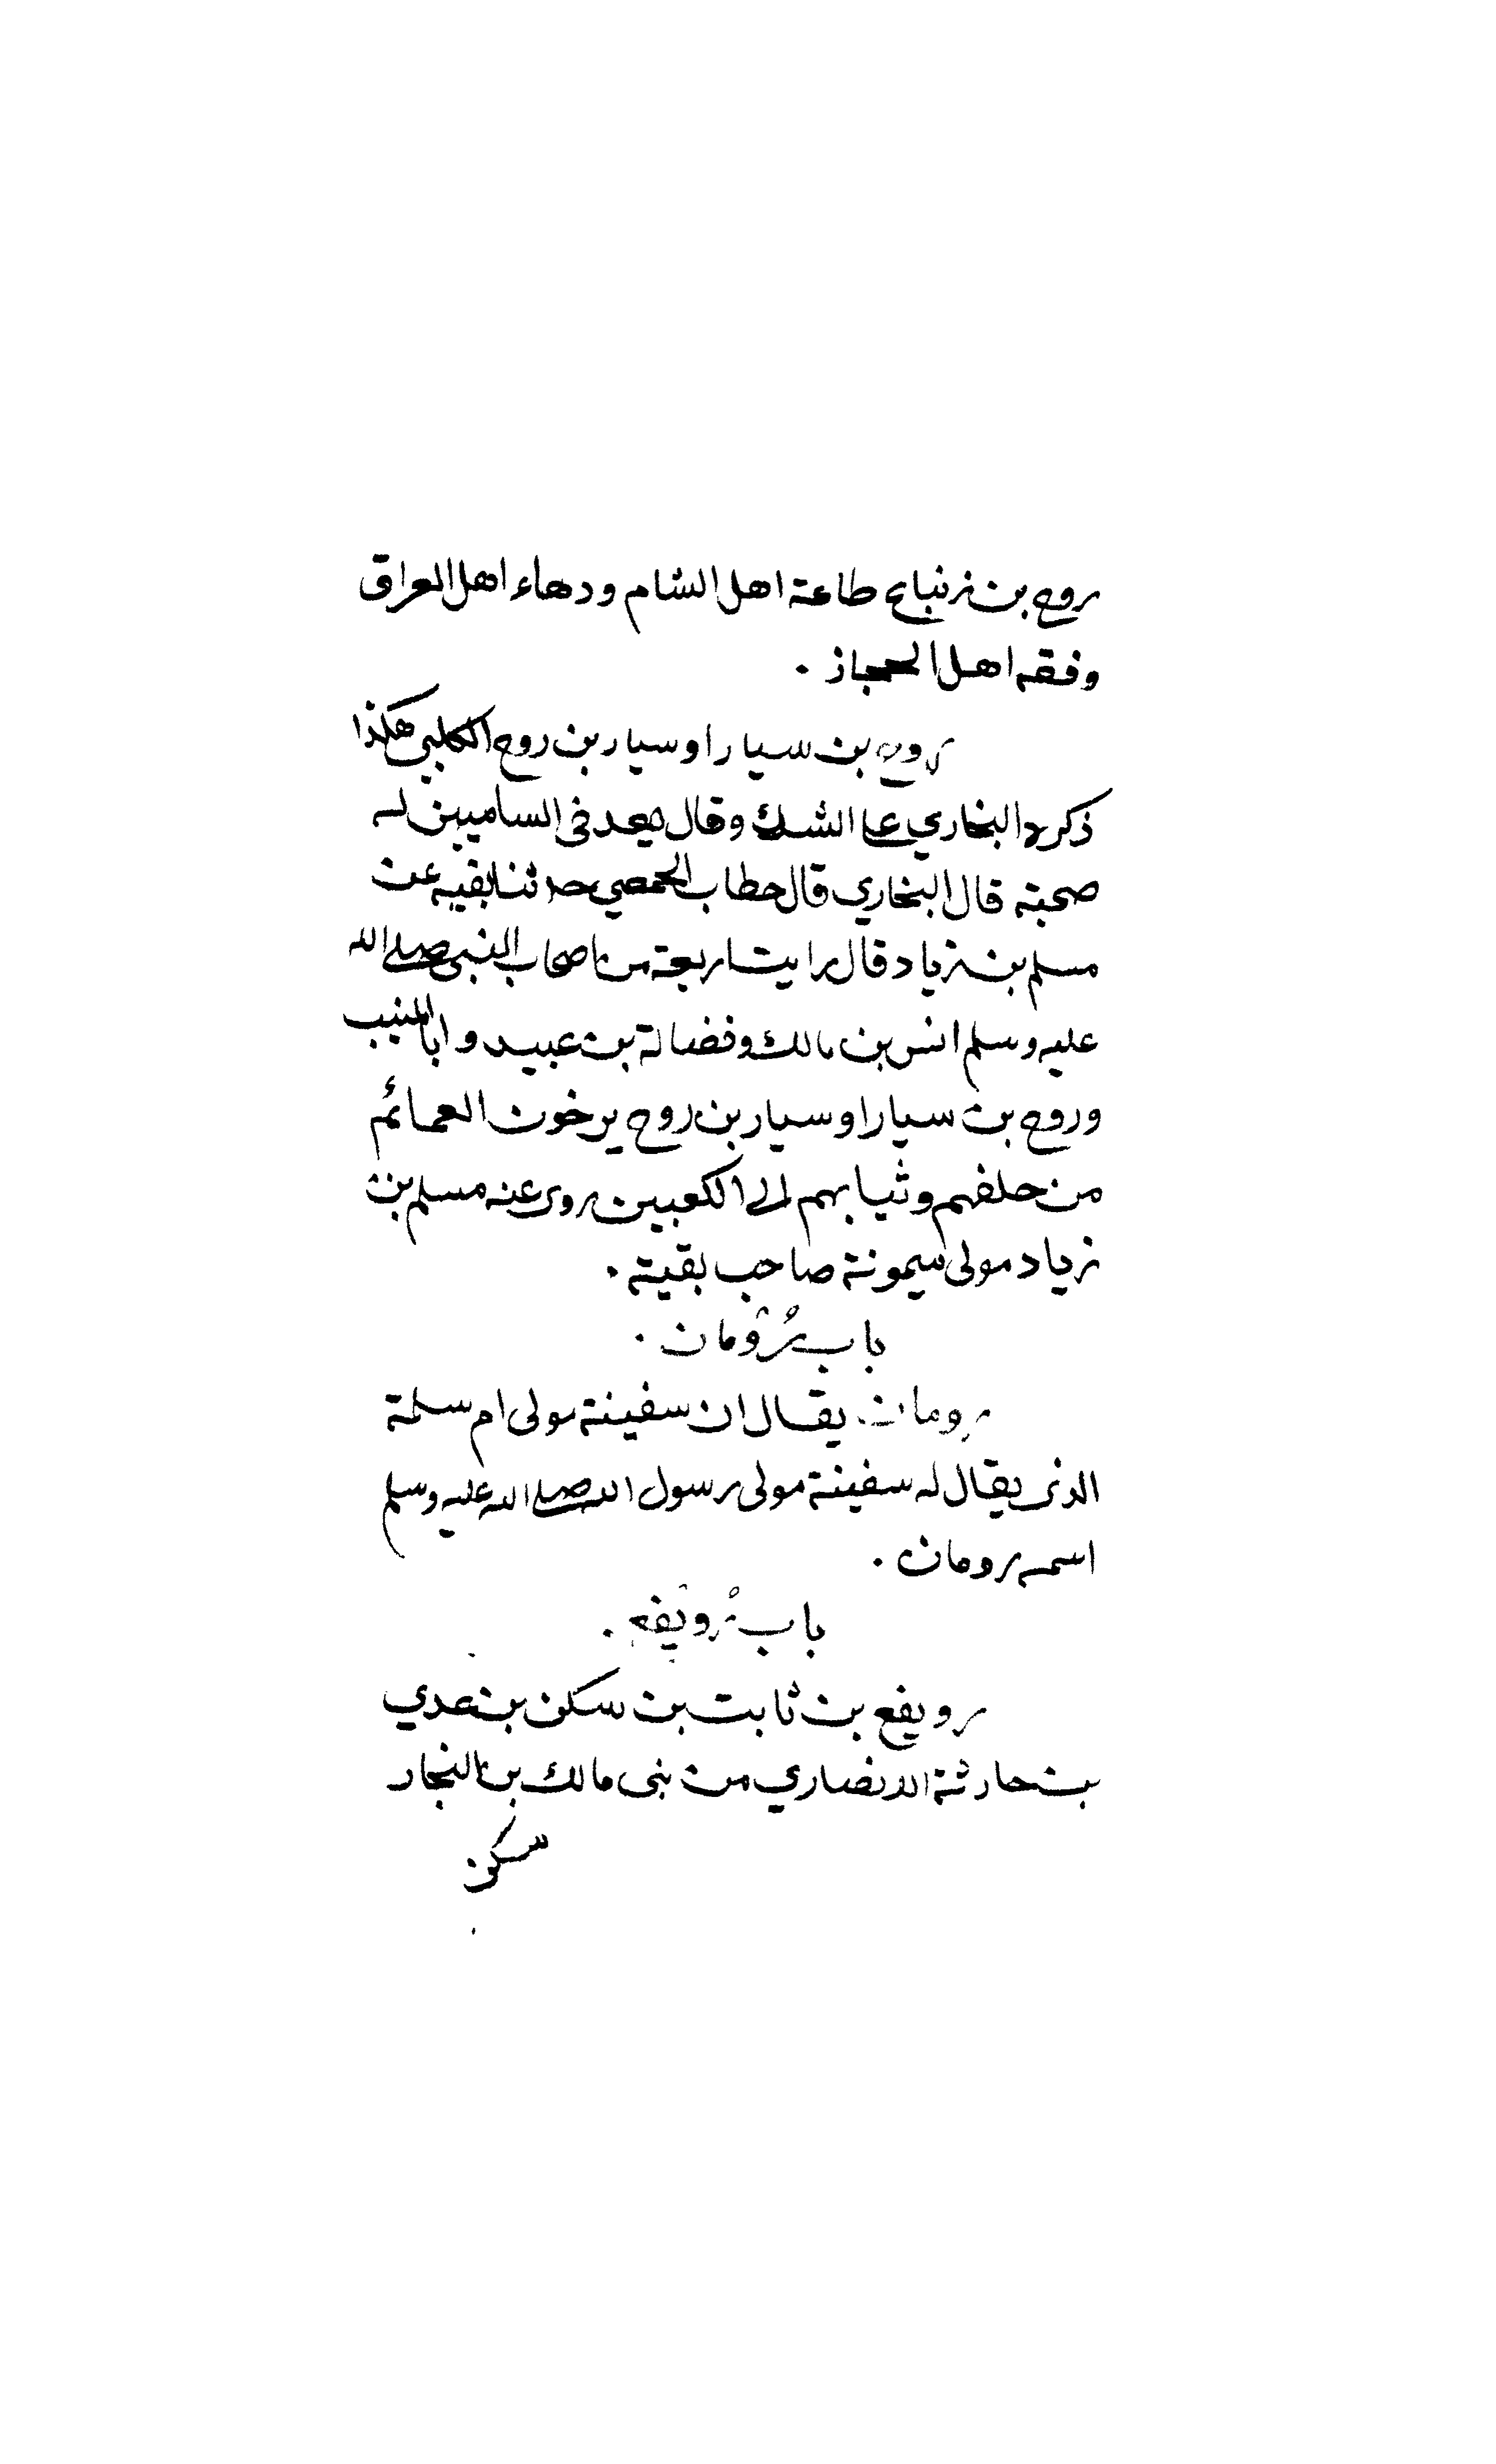 روح بن زنباع طاعة اهل الشام ودهاء اهل العراق
وفقه اهل الحجاز .
روح بن سيار او سيار بن روح الكلبي هكذا
ذكره البخاري على الشك وقال يعد في الساميين له
صحبة قال البخاري قال حطاب الحمصي حدثنا بقية عن
مسلم بن زياد قال رايت اربعة من اصحاب النبي صلى الله
عليه وسلم انس بن مالك وفضالة بن عبيد وابا المنيب
وروح بن سيار او سيار بن روح يرخون العمائم
من حلفهم وثيابهم الى الكعبين روى عنه مسلم بن
زياد مولى ميمونة صاحب بقية .
باب رُوْمان .
رومان يقال ان سفينة مولى ام سلمة
الذي يقال له سفينة مولى رسول الله صلى الله عليه وسلم
اسمه رومان .
باب رُويفع .
رويفع بن ثابت بن سكن بن عدي
بن حارثة الانصاري من بني مالك بن النجار
سكن